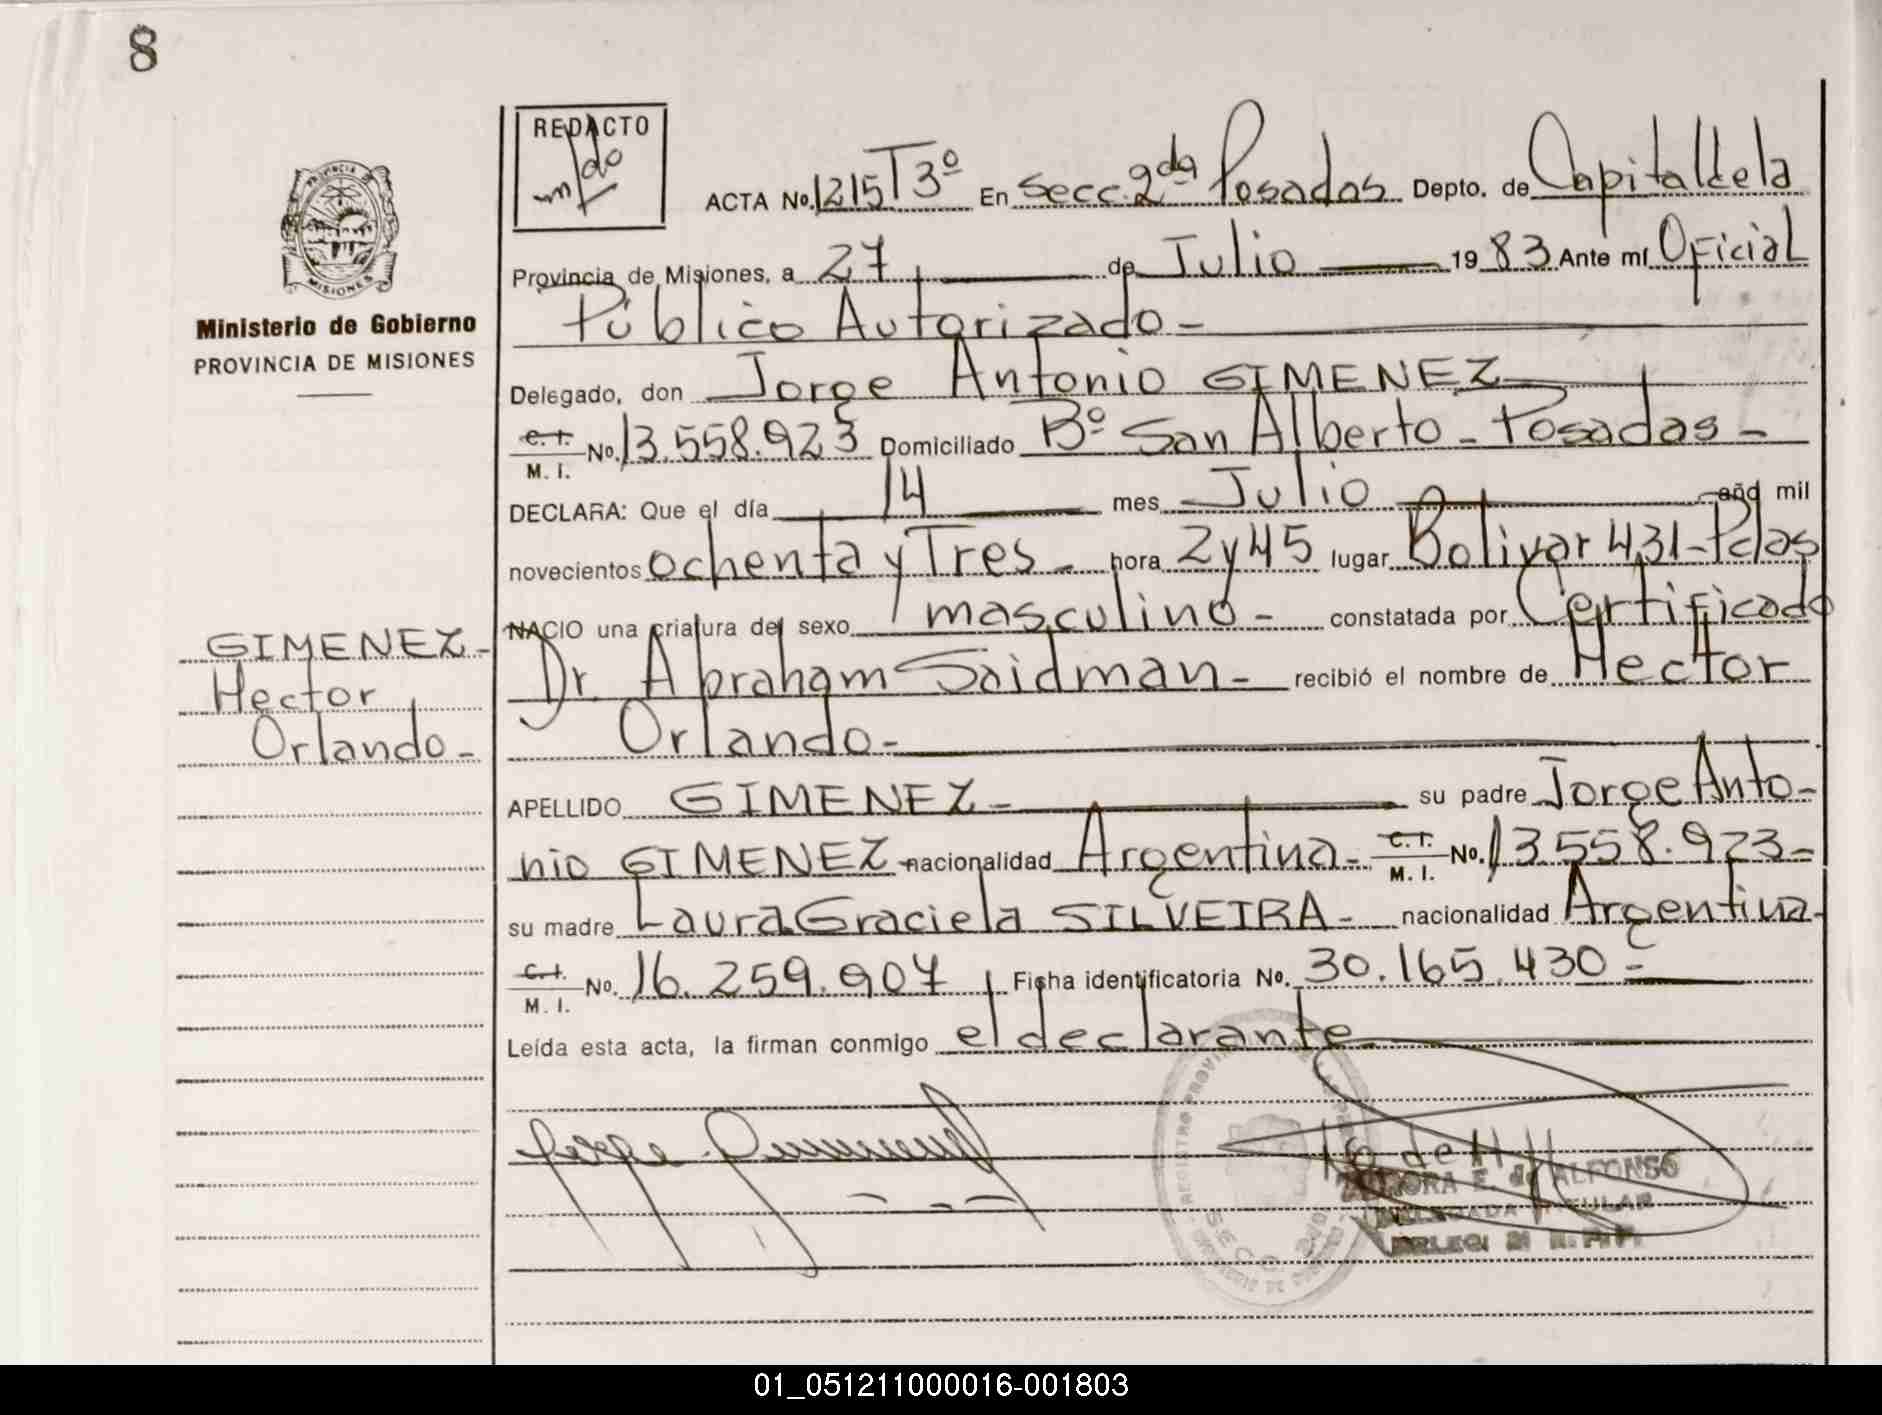 8
REDACTO
PROVINCIA
MISIONES
ACTA No. 1215 T3º En Secc. 2da Posadas Depto. de Capital de la
Provincia de Misiones, a 27 de Julio 1983 Ante mí Oficial
Ministerio de Gobierno
PROVINCIA DE MISIONES
Público Autorizado -
Delegado, don Jorge Antonio GIMENEZ
C.I. M.I. No. 13.558.923 Domiciliado Bº San Alberto - Posadas -
DECLARA: Que el día 14 mes Julio año mil
novecientos ochenta y Tres - hora 2 y 45 lugar Bolivar 431 - Pdas
NACIO una criatura de sexo masculino - constatada por Certificado
Dr. Abraham Saidman - recibió el nombre de Hector
Orlando -
GIMENEZ -
Hector
Orlando -
APELLIDO GIMENEZ - su padre Jorge Anto-
nio GIMENEZ nacionalidad Argentina - C.I. M.I. No. 13.558.923 -
su madre Laura Graciela SILVEIRA - nacionalidad Argentina -
C.I. M.I. No. 16.259.907 Ficha identificatoria No. 30.165.430 =
Leída esta acta, la firman conmigo el declarante
REGISTRO
SECC. 2da
E. de ALFONSO
DELEGADA TITULAR
01_051211000016-001803